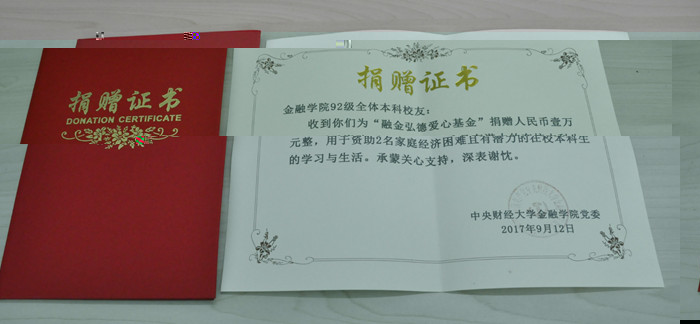 捐赠证书
DONATION CERTIFICATE
捐赠证书
金融学院92级全体本科校友：
收到你们为“融金弘德爱心基金”捐赠人民币壹万
元整，用于资助2名家庭经济困难且有潜力的在校本科生
的学习与生活。承蒙关心支持，深表谢忱。
中央财经大学金融学院党委
2017年9月12日